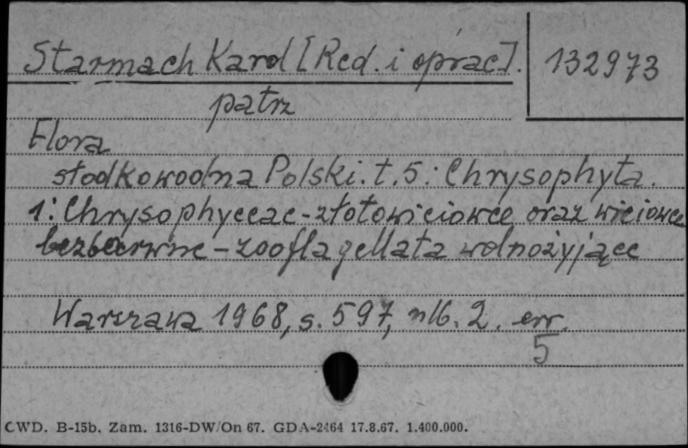 Starmach Karol [Red. i oprac]. 132973
patrz
Flora
słodkowodna Polski. t. 5: Chrysophyta.
1: Chrysophyceae - złotowiciowce oraz wiciowce
bezbarwne - zooflagellata wolnożyjące
Warszawa 1968, s. 597, nlb. 2. err.
5
CWD. B-15b. Zam. 1316-DW/On 67. GDA-2464 17.8.67. 1.400.000.